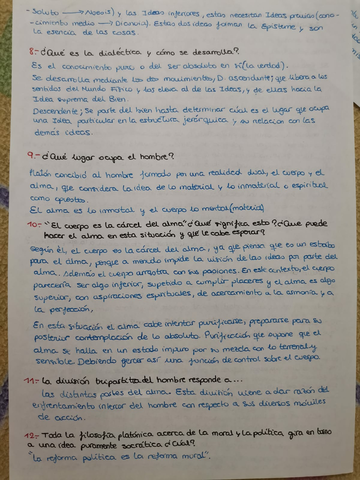 - Soluto → Noesis) y las Ideas inferiores, estas necesitan Ideas previas (cono-
cimiento medio → Dianoia). Estas dos ideas forman la Episteme y son
la esencia de las cosas
8.- ¿Qué es la dialéctica y cómo se desarrolla?
Es el conocimiento puro o del ser absoluto en (la verdad).
Se desarrolla mediante los dos movimientos, D. ascendente; que libera a los
sentidos del Mundo Físico y los eleva al de las Ideas, y de ellas hacia la
Idea suprema del Bien.
Descendente; se parte del bien hasta determinar cual es el lugar que ocupa
una Idea particular en la estructura jerárquica y su relación con las
demás ideas.
9.- ¿Qué lugar ocupa el hombre?
Platón concibió al hombre formado por una realidad dual, el cuerpo y el
alma, que considera la idea de lo material y lo inmaterial o espiritual
como opuestos.
El alma es lo inmortal y el cuerpo lo mortal (materia)
10.- "El cuerpo es la cárcel del alma" ¿Qué significa esto? ¿Que puede
hacer el alma en esta situación y qué le cabe esperar?
Según él, el cuerpo es la cárcel del alma, ya que piensa que es un estorbo
para el alma, porque a menudo impide la visión de las ideas por parte del
alma. Además el cuerpo arrastra con sus pasiones. En este contexto, el cuerpo
parecería ser algo inferior, supetido a cumplir placeres y el alma es algo
superior, con aspiraciones espirituales, de acercamiento a la armonía y a
la perfección,
En esta situación el alma cabe intentar purificarse, prepararse para su
posterior contemplación de lo absoluto. Purificación que supone que el
alma se halla en un estado impuro por su mezcla con lo terrenal y
sensible. Debiendo gercer así una función de control sobre el cuerpo.
11.- La división tripartita del hombre responde a...
las distintas partes del alma. Esta división viene a dar razón del
enfrentamiento interior del hombre con respecto a sus diversos móviles
de acción.
12.- Toda la filosofía platónica acerca de la moral y la política, gira en torno
a una idea puramente socrática ¿Cual?
"la reforma política es la reforma moral".